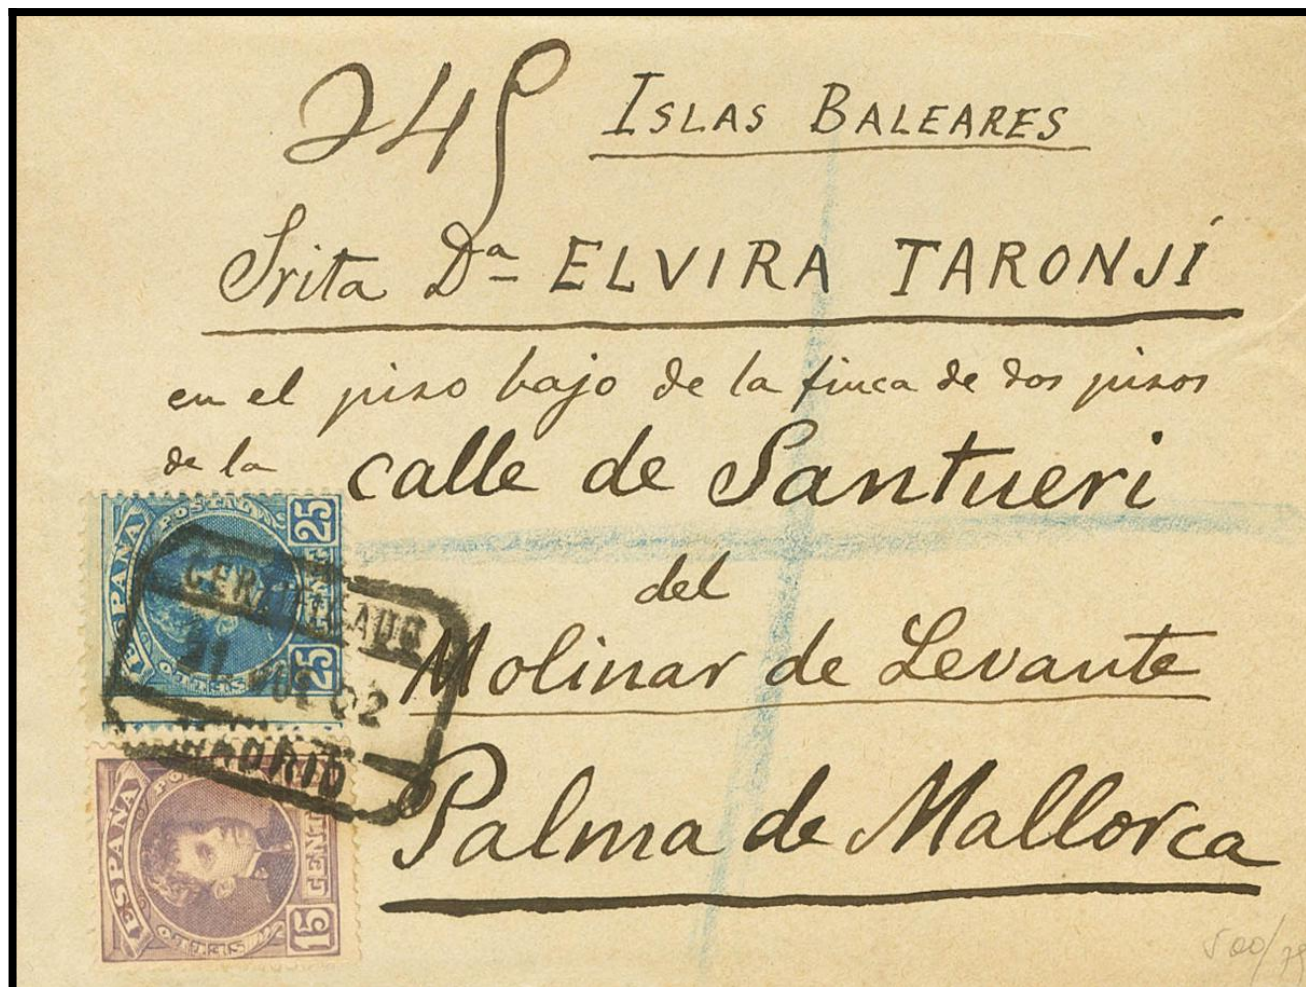 245 ISLAS BALEARES
Srita Dª ELVIRA TARONJÍ
en el piso bajo de la finca de dos pisos
de la calle de Santueri
del
Molinar de Levante
Palma de Mallorca
ESPAÑA
POSTAL
25
25
CERTIFICADO
02
MADRID
ESPAÑA
15
CENT
500/75